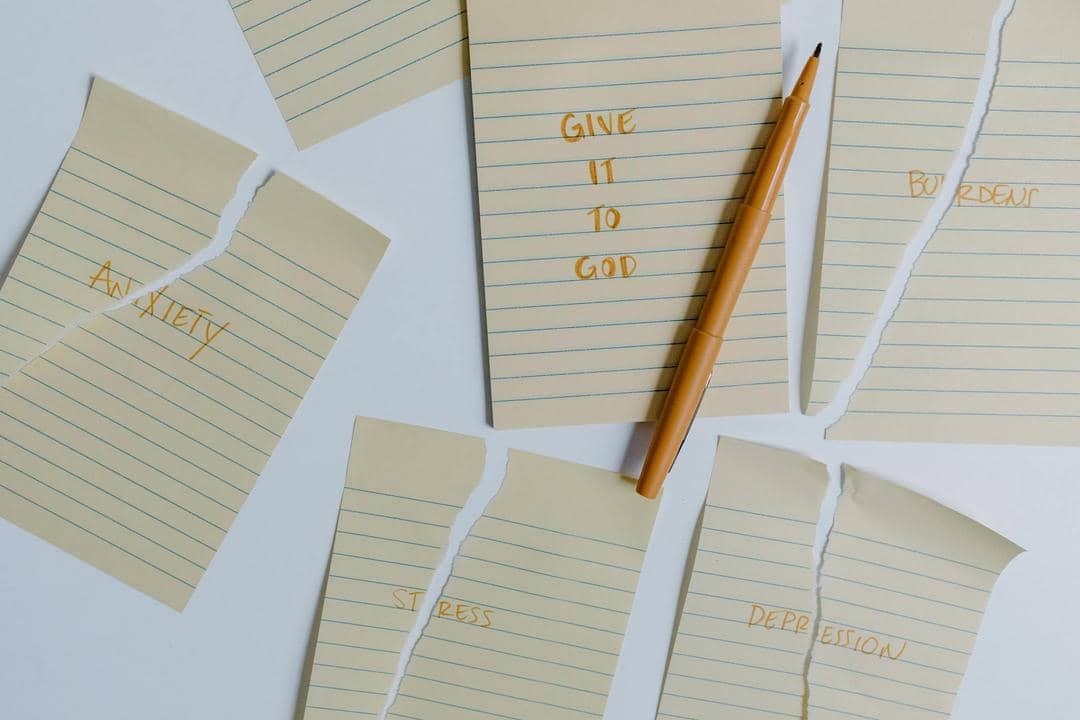 GIVE
IT
TO
GOD
BURDENS
ANXIETY
STRESS
DEPRESSION